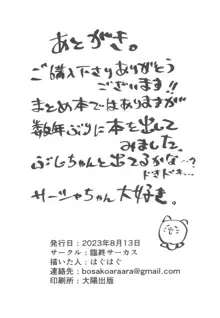 あとがき。
ご購入下さりありがとう
ございます!!
まとめ本ではありますが
数年ぶりに本を出して
みました。
ぶじちゃんと出てるかな…?
ドキドキ…
サーシャちゃん大好き。
発行日:2023年8月13日
サークル:臨終サーカス
描いた人:はぐはぐ
連絡先:bosakoaraara@gmail.com
印刷所:大陽出版